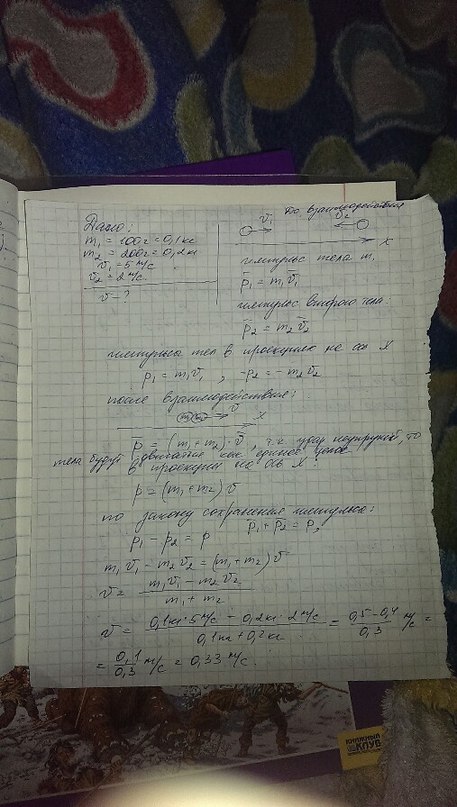 до взаимодействия
Дано:
m₁ = 100г = 0,1кг
m₂ = 200г = 0,2кг
v₁ = 5 м/с
v₂ = 2 м/с
v̄ - ?
v̄₁ v̄₂
x
импульс тела m₁
p̄₁ = m₁v̄₁
импульс второго тела
p̄₂ = m₂v̄₂
импульсы тел в проекцию на ось X
p₁ = m₁v₁, -p₂ = -m₂v₂
после взаимодействия:
m₁ m₂ v̄ x
p̄ = (m₁+m₂)·v̄, т.к удар неупругий, то
тела будут двигатся как единое целое
в проекции на ось X:
p = (m₁+m₂)v
по закону сохранения импульса:
p̄₁ + p̄₂ = p̄,
p₁ - p₂ = p
m₁v₁ - m₂v₂ = (m₁+m₂)v
v = (m₁v₁ - m₂v₂) / (m₁ + m₂)
v = (0,1кг·5м/с - 0,2кг·2м/с) / (0,1кг + 0,2кг) = (0,5-0,4)/0,3 м/с =
= 0,1/0,3 м/с = 0,33 м/с
КНИЖНЫЙ
КЛУБ